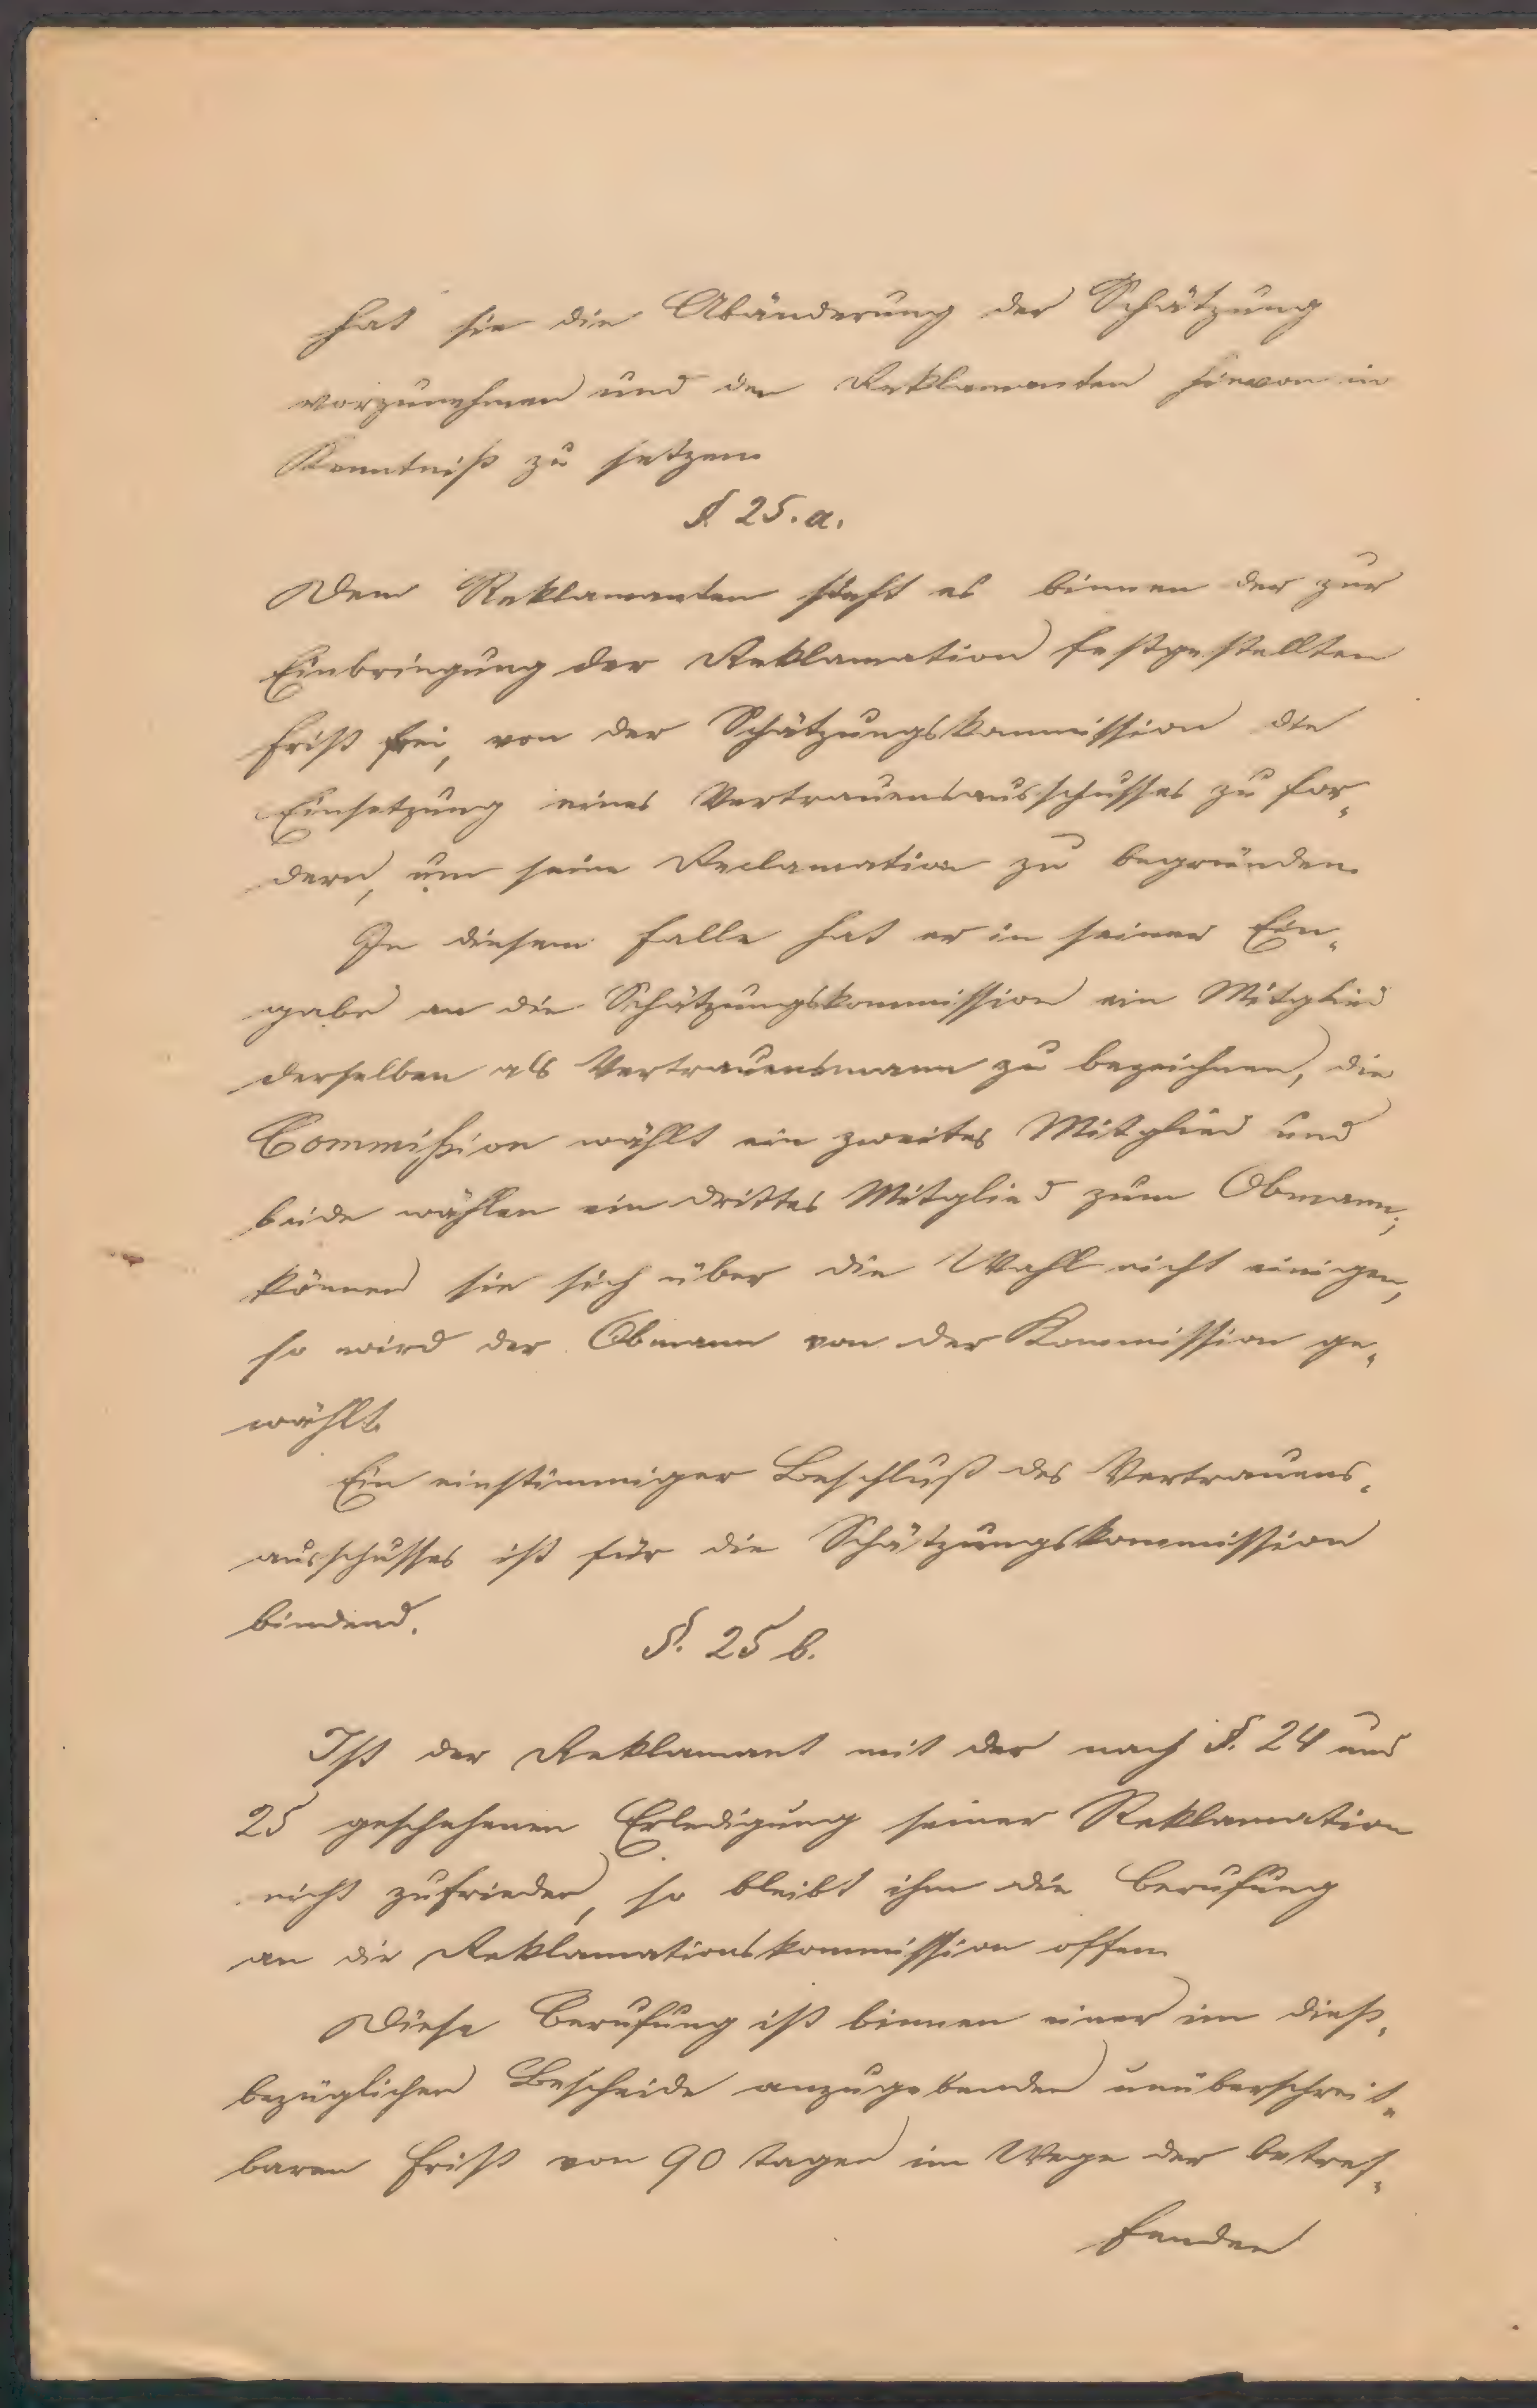 hat sie die Abänderung der Schätzung
vorzunehmen und den Reklamanten hievon in
Kenntniß zu setzen.
§. 25. a.
Dem Reklamanten steht es binnen der zur
Einbringung der Reklamation festgestellten
Frist frei, von der Schätzungskommission die
Einsetzung eines Vertrauensausschusses zu for„
dern, um seine Reclamation zu begründen.
In diesem Falle hat er in seiner Ein„
gabe an die Schätzungskommission ein Mitglied
derselben als Vertrauensmann zu bezeichnen, die
Commißion wählt ein zweites Mitglied und
beide wählen ein drittes Mitglied zum Obmann;
können sie sich über die Wahl nicht einigen,
so wird der Obmann von der Kommission ge„
wählt.
Ein einstimmiger Beschluß des Vertrauens„
ausschusses ist für die Schätzungskommission
bindend.
§. 25 b.
Ist der Reklamant mit der nach §. 24 und
25 geschehenen Erledigung seiner Reklamation
nicht zufrieden, so bleibt ihm die Berufung
an die Reklamationskommission offen.
Diese Berufung ist binnen einer im dieß„
bezüglichen Bescheide anzugebenden unüberschreit„
baren Frist von 90 Tagen im Wege der betref„
fenden